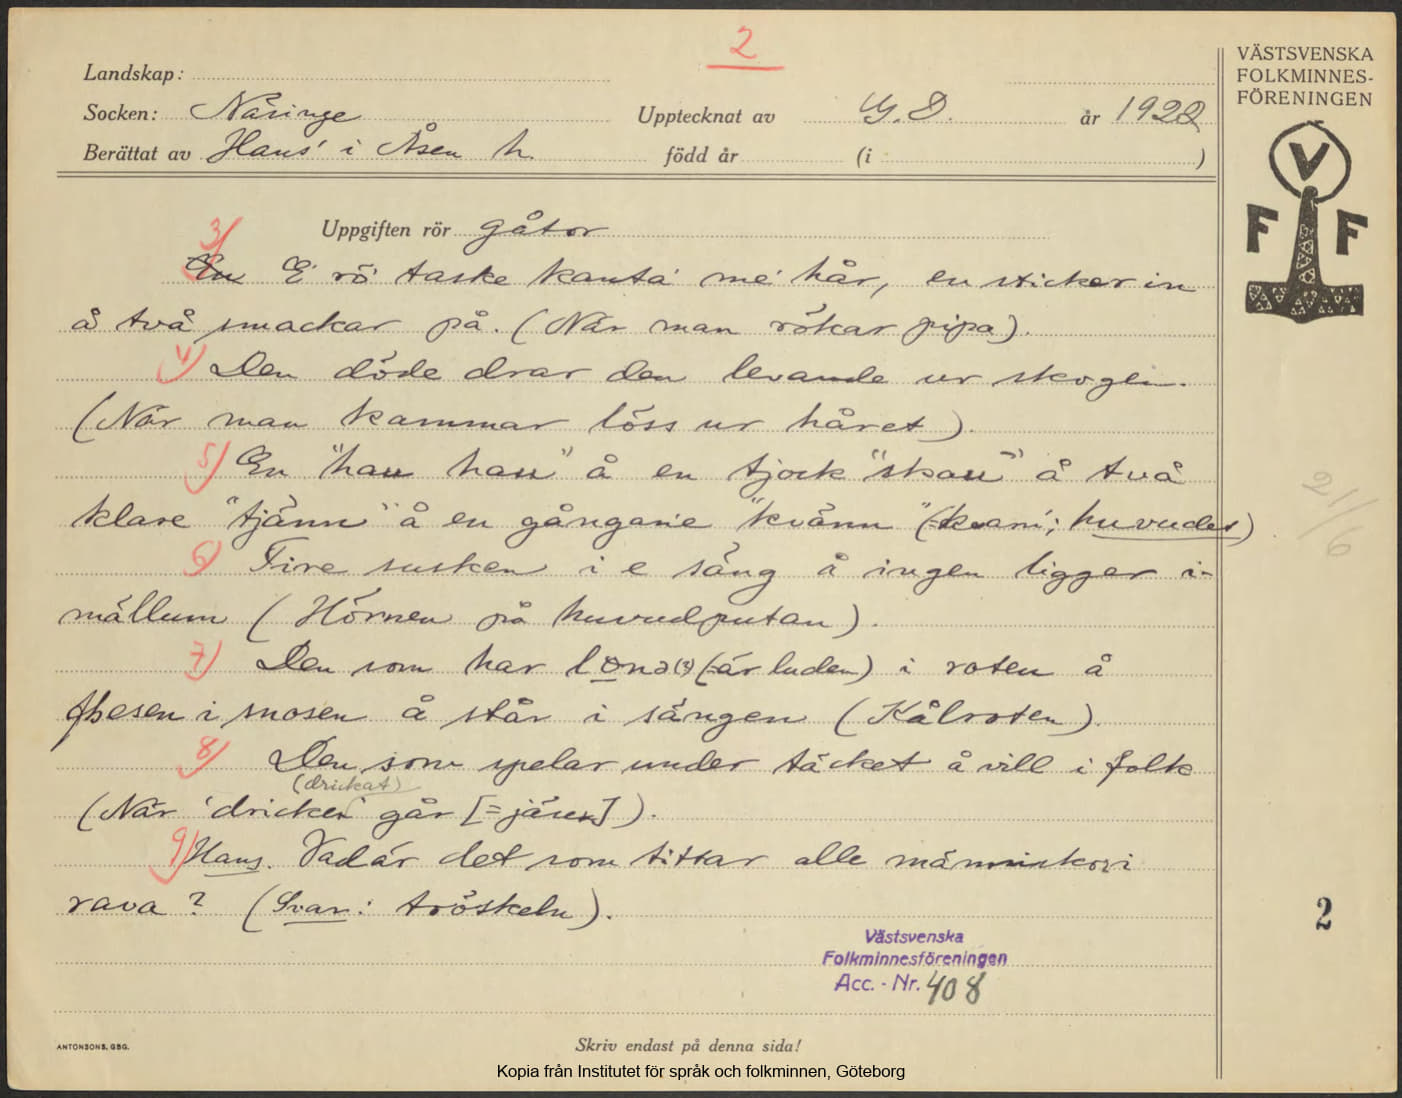 2
VÄSTSVENSKA
FOLKMINNES-
FÖRENINGEN
Landskap:
Socken: Näsinge Upptecknat av G. D. år 1922
Berättat av Hans' i Åsen h. född år (i )
V
F F
Uppgiften rör gåtor
3) En E' rö' taske kanta' me' hår, en sticker in
å två smackar på. (När man rökar pipa).
4) Den döde drar den levande ur skogen.
(När man kammar löss ur håret).
5) En "hau hau" å en tjock "skau" å två
klare "tjänn" å en gångarie "kvänn" (huvudet)
6) Fire susken i e säng å ingen ligger i-
mällum (Hörnen på huvudputan).
7) Den som har (är luden) i roten å
fjesen i snosen å står i sängen (Kålroten).
8) Den som spelar under täcket å vill i folk
(drickat)
(När 'dricken' går [= jäser]).
9) Hans. Vad är det som tittar alle människor i
rava? (Svar: tröskeln).
21/6
2
Västsvenska
Folkminnesföreningen
Acc. - Nr. 408
ANTONSONS, GBG.
Skriv endast på denna sida!
Kopia från Institutet för språk och folkminnen, Göteborg